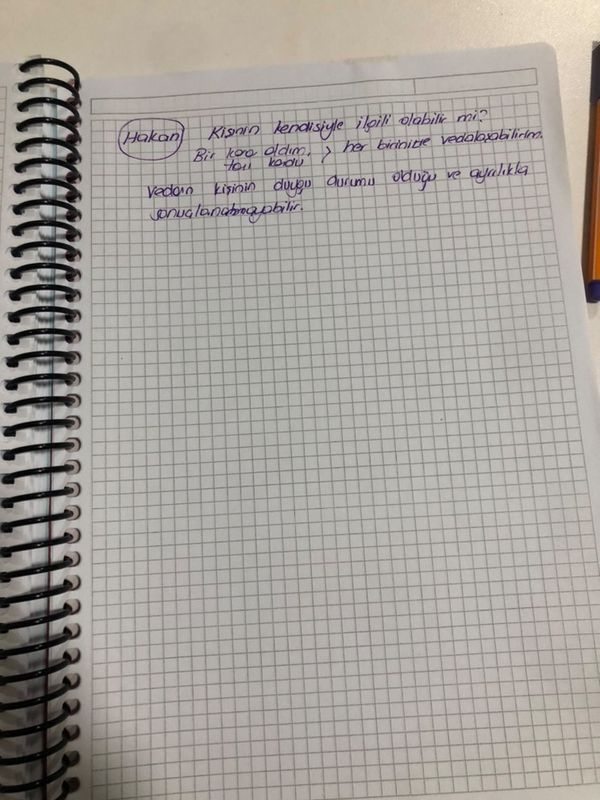 Hakan Kişinin kendisiyle ilgili olabilir mi?
Bir koo aldım, > her birinizle vedalaşabilirim.
vedanın kişinin duygu durumu olduğu ve ayrılıkla
sonuçlanabilir.